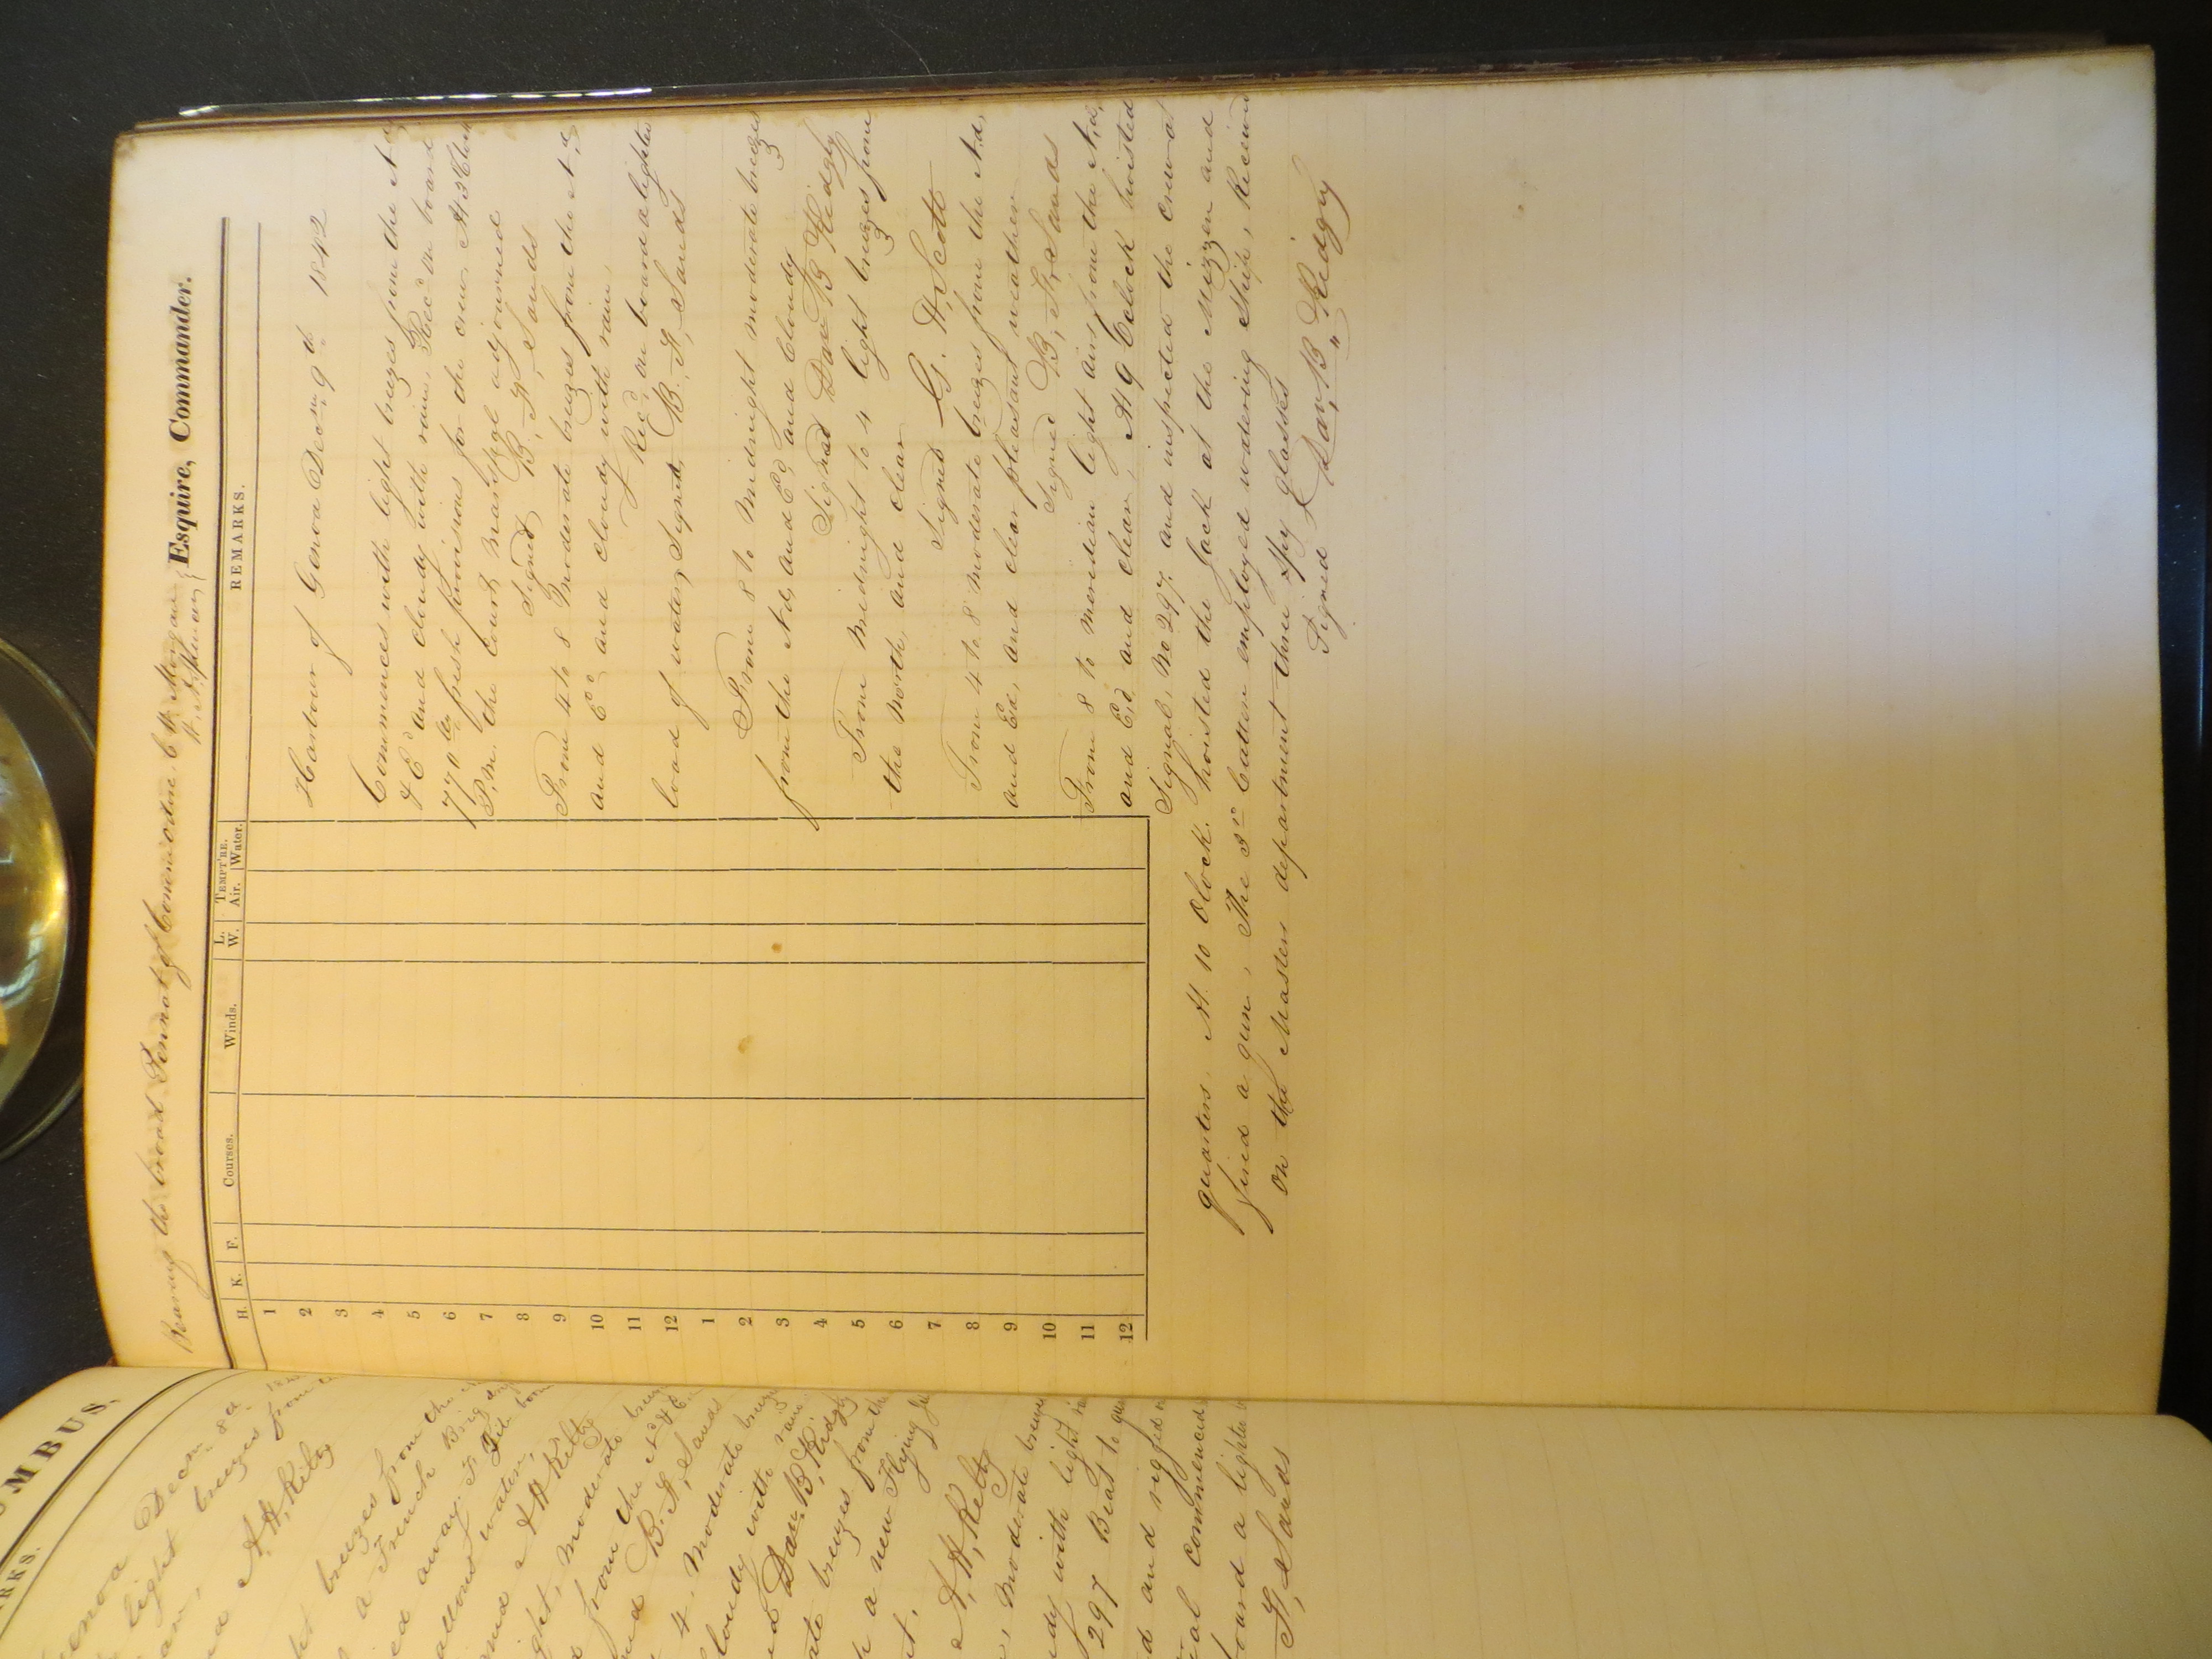 MBUS.
RKS.
enoa Decm 8th
light breezes from
A, H, Kelty
breezes from the
a French Brig
away
water,
A H Kelty
ght, moderate breezes
from the
B. F. Sands
4. Moderate breezes
loudy with rain
Dan B, Ridgly
ate breezes from the
a new Flying
A, H, Kelty
Moderate breezes
dy with light
297 Beat to qua
d and rigged
al commenced
board a lighter
F, Sands
Bearing the broad Pennat of Commodore C W Morgan Esquire, Commander.
H. K. F. Courses. Winds. L. W. TEMPT'RE. Air. Water. REMARKS.
1
2
3
4
5
6
7
8
9
10
11
12
1
2
3
4
5
6
7
8
9
10
11
12
Harbour of Genoa Decm 9th 1842
Commences with light breezes from the N d
& Ed and cloudy with rain, Recd on board
770 lbs fresh provisions for the crew At 3 Clock
P.M. the Court martial adjourned
Signed B. F. Sands
From 4 to 8 Moderate breezes from the N d
and Ed and cloudy with rain,
Recd on board a lighter
load of water, Signed, B. F, Sands
From 8 to Midnight moderate breezes
from the Nd, and Ed, and Cloudy
Signed Dan B Ridgly
From Midnight to 4 light breezes from
the North, and clear
Signed G. H, Scott
From 4 to 8 moderate breezes from the Nd,
and Ed, and clear pleasant weather
Signed B, F, Sands
From 8 to meredian light airs from the Nd,
and Ed, and clear, At 9 Oclock hoisted
Signal, No 297. and inspected the crew at
quarters. At 10 Olock. hoisted the Jack at the Mizzen and
fired a gun, The 3d Cutter employed watering Ship, Received
on the Masters department three Spy Glasses
Signed Dan, B Ridgy